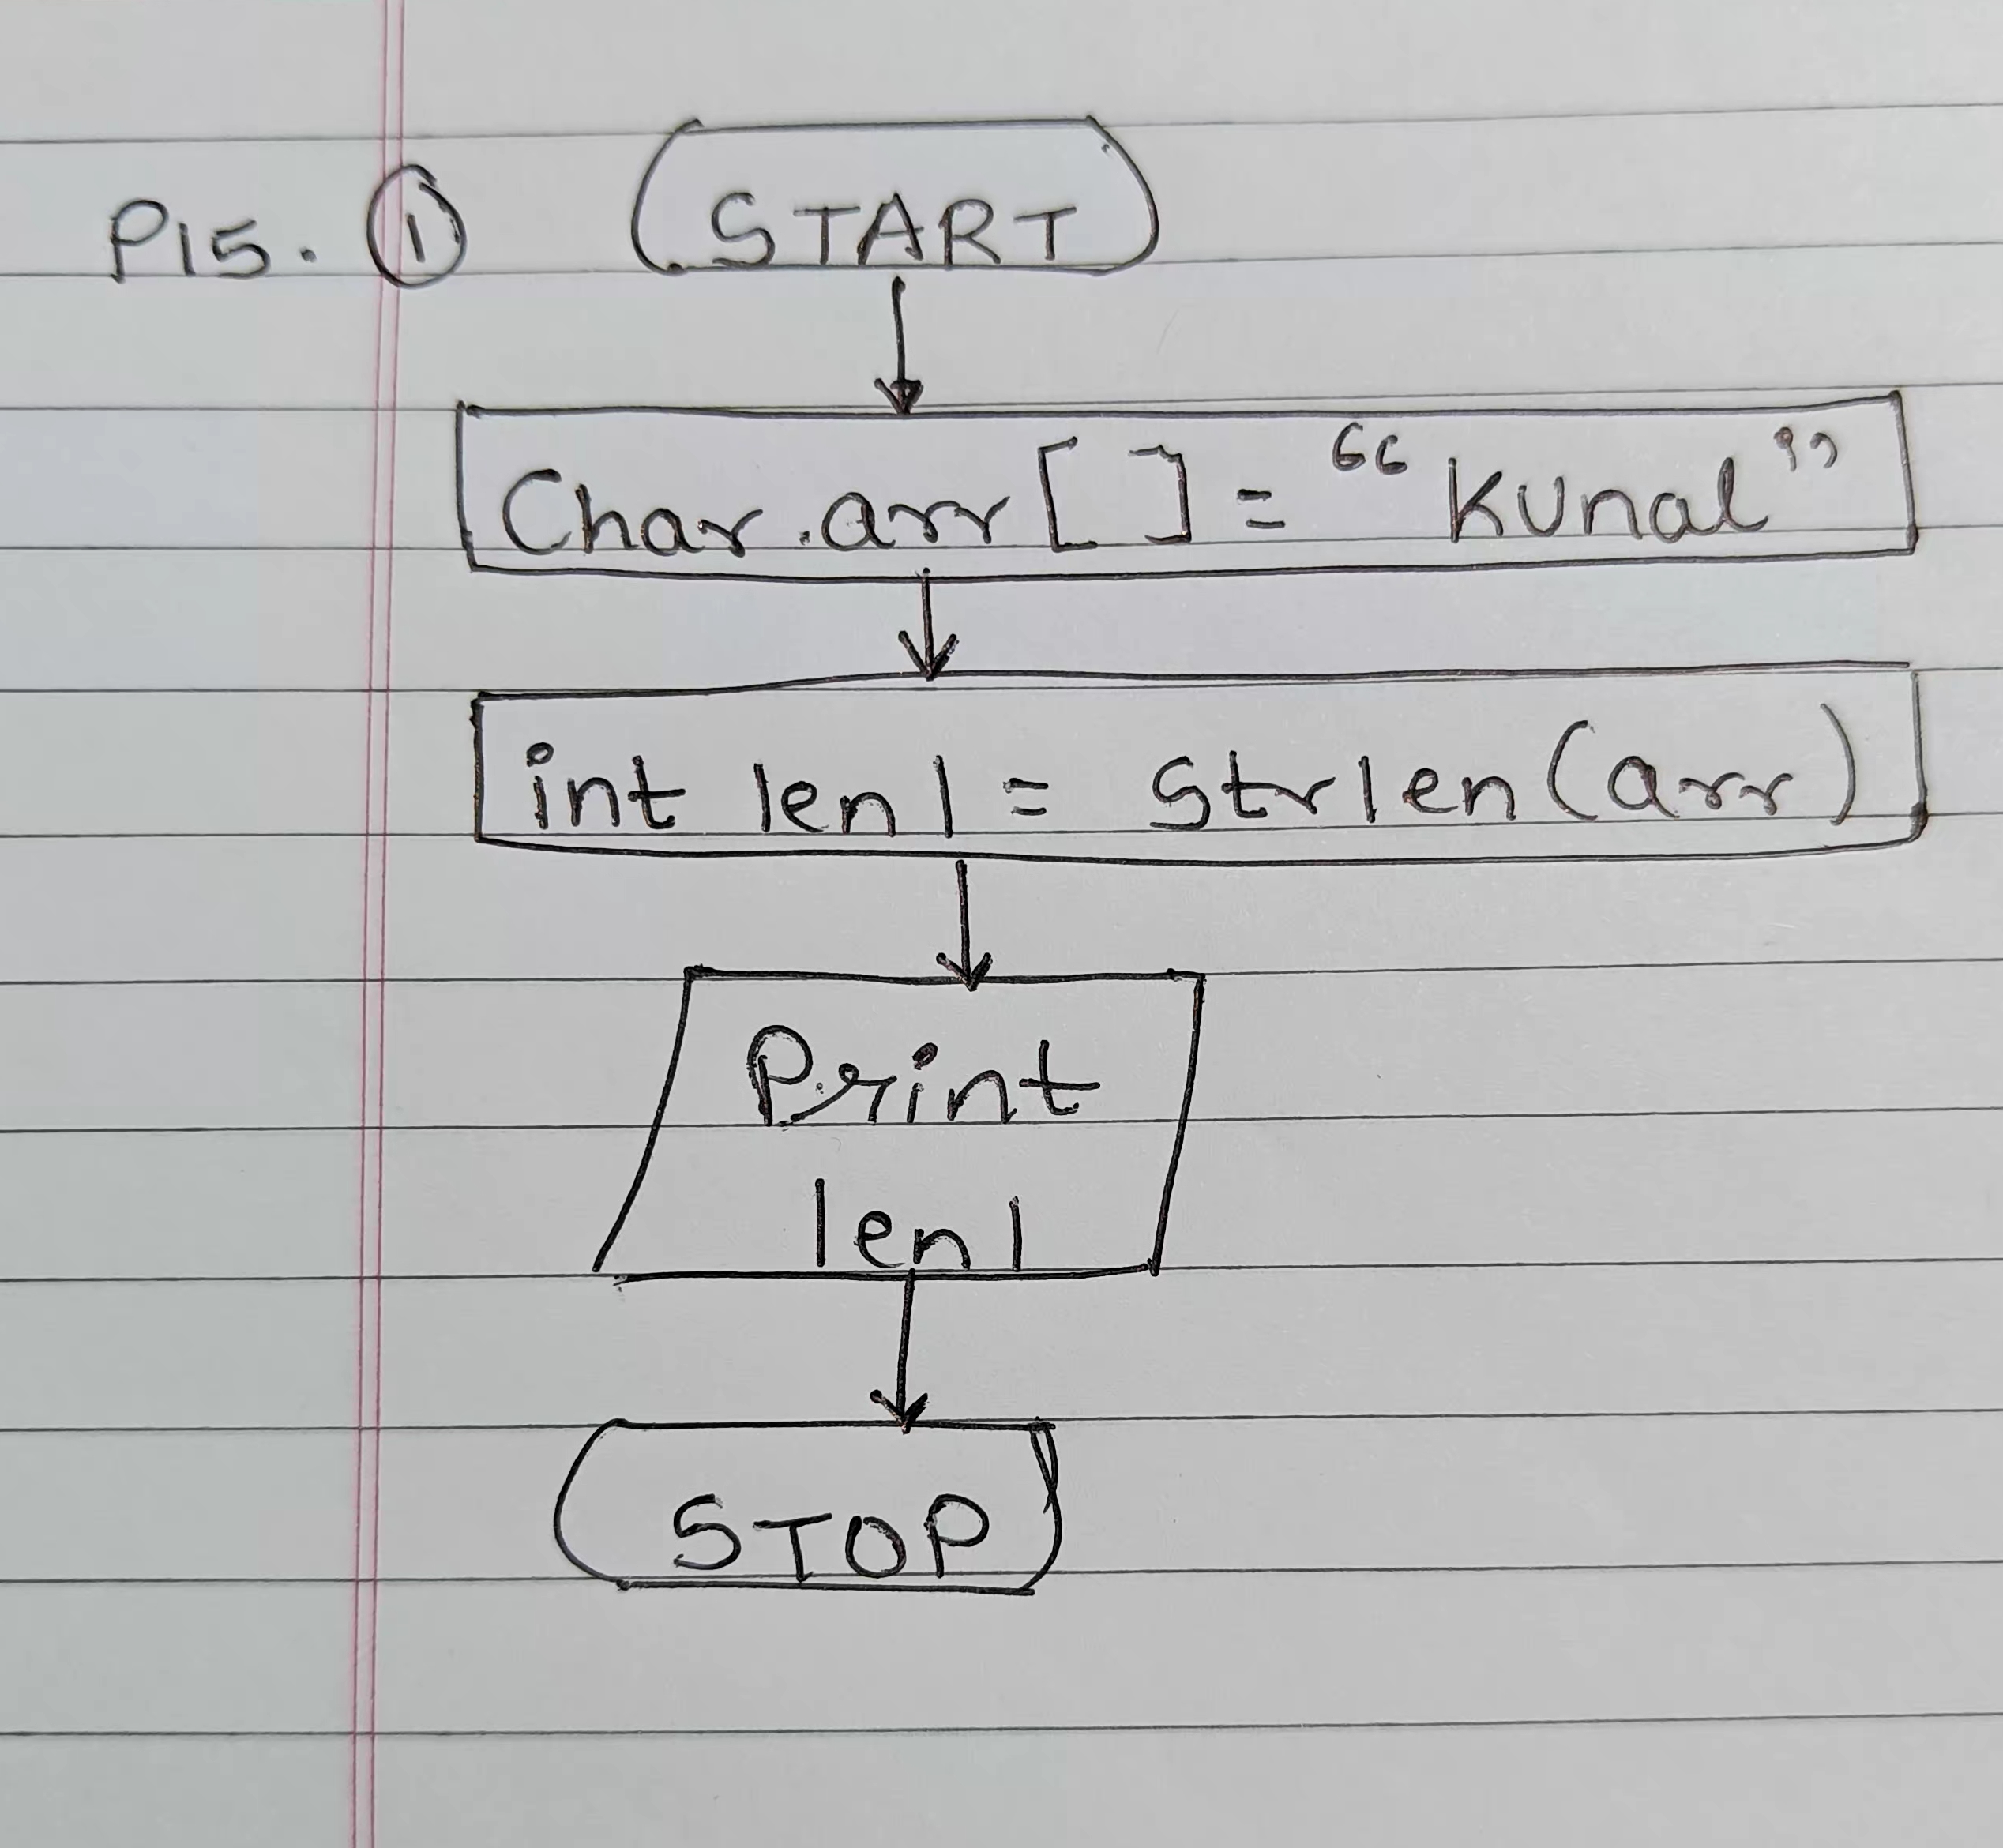 P15. ① START
Char.arr[ ] = “Kunal”
int len1 = Strlen(arr)
Print
len1
STOP